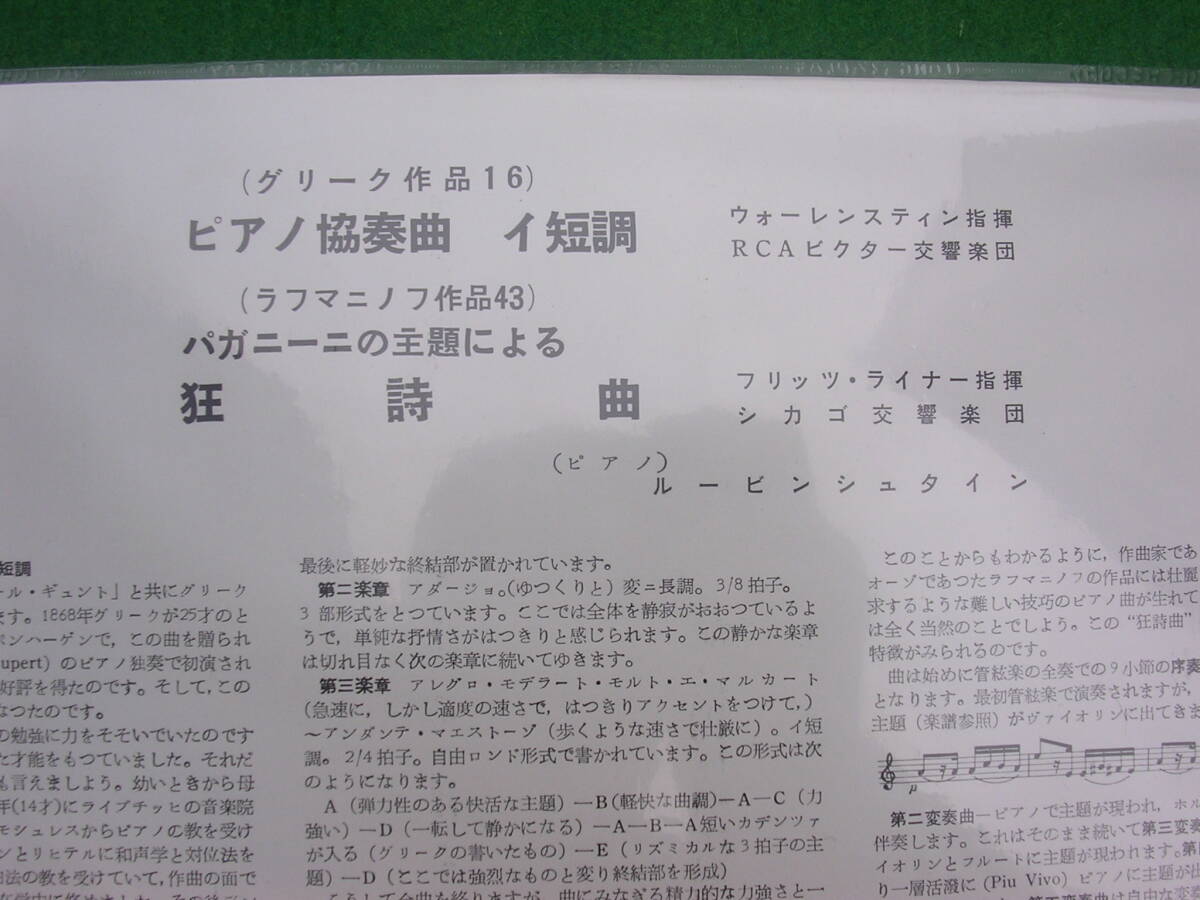 (グリーク作品16)
ピアノ協奏曲 イ短調
ウォーレンスティン指揮
RCAビクター交響楽団
(ラフマニノフ作品43)
パガニーニの主題による
狂詩曲
フリッツ・ライナー指揮
シカゴ交響楽団
(ピアノ)
ルービンシュタイン
短調
ール・ギュント」と共にグリーク
ます。1868年グリークが25才のと
ペンハーゲンで，この曲を贈られ
upert) のピアノ独奏で初演され
好評を得たのです。そして，この
なつたのです。
の勉強に力をそそいでいたのです
た才能をもつていました。それだ
も言えましよう。幼いときから母
年(14才)にライプチッヒの音楽院
モシュレスからピアノの教を受け
ンとリヒテルに和声学と対位法を
法の教を受けていて，作曲の面で
最後に軽妙な終結部が置かれています。
第二楽章 アダージョ。(ゆつくりと) 変ニ長調。3/8拍子。
3部形式をとつています。ここでは全体を静寂がおおつているよ
うで，単純な抒情さがはつきりと感じられます。この静かな楽章
は切れ目なく次の楽章に続いてゆきます。
第三楽章 アレグロ・モデラート・モルト・エ・マルカート
(急速に，しかし適度の速さで，はつきりアクセントをつけて，)
～アンダンテ・マエストーゾ (歩くような速さで壮厳に) 。イ短
調。2/4拍子。自由ロンド形式で書かれています。この形式は次
のようになります。
A (弾力性のある快活な主題) ―B (軽快な曲調)―A―C (力
強い) ―D (一転して静かになる) ―A―B―A短いカデンツァ
が入る (グリークの書いたもの) ―E (リズミカルな3拍子の主
題) ―D (ここでは強烈なものと変り終結部を形成)
こうして全曲を終りますが，曲にみなぎる精力的な力強さと一
このことからもわかるように，作曲家であ
オーゾであつたラフマニノフの作品には壮麗
求するような難しい技巧のピアノ曲が生れて
は全く当然のことでしよう。この “狂詩曲”
特徴がみられるのです。
曲は始めに管絃楽の全奏での9小節の序奏
となります。最初管絃楽で演奏されますが，
主題 (楽譜参照) がヴァイオリンに出てきま
第二変奏曲―ピアノで主題が現われ，ホル
伴奏します。これはそのまま続いて第三変奏
イオリンとフルートに主題が現われます。第
り一層活潑に (Piu Vivo) ピアノに主題が出